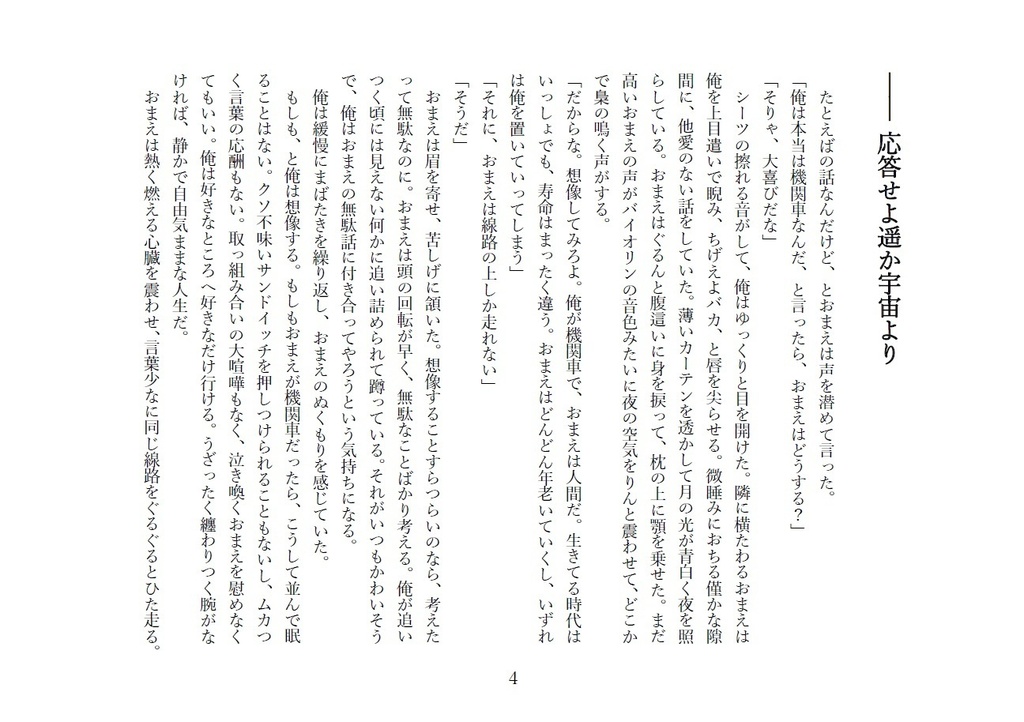 ―― 応答せよ遥か宇宙より
たとえばの話なんだけど、とおまえは声を潜めて言った。
「俺は本当は機関車なんだ、と言ったら、おまえはどうする？」
「そりゃ、大喜びだな」
シーツの擦れる音がして、俺はゆっくりと目を開けた。隣に横たわるおまえは
俺を上目遣いで睨み、ちげえよバカ、と唇を尖らせる。微睡みにおちる僅かな隙
間に、他愛のない話をしていた。薄いカーテンを透かして月の光が青白く夜を照
らしている。おまえはぐるんと腹這いに身を捩って、枕の上に顎を乗せた。まだ
高いおまえの声がバイオリンの音色みたいに夜の空気をりんと震わせて、どこか
で梟の鳴く声がする。
「だからな。想像してみろよ。俺が機関車で、おまえは人間だ。生きてる時代は
いっしょでも、寿命はまったく違う。おまえはどんどん年老いていくし、いずれ
は俺を置いていってしまう」
「それに、おまえは線路の上しか走れない」
「そうだ」
おまえは眉を寄せ、苦しげに頷いた。想像することすらつらいのなら、考えた
って無駄なのに。おまえは頭の回転が早く、無駄なことばかり考える。俺が追い
つく頃には見えない何かに追い詰められて蹲っている。それがいつもかわいそう
で、俺はおまえの無駄話に付き合ってやろうという気持ちになる。
俺は緩慢にまばたきを繰り返し、おまえのぬくもりを感じていた。
もしも、と俺は想像する。もしもおまえが機関車だったら、こうして並んで眠
ることはない。クソ不味いサンドイッチを押しつけられることもないし、ムカつ
く言葉の応酬もない。取っ組み合いの大喧嘩もなく、泣き喚くおまえを慰めなく
てもいい。俺は好きなところへ好きなだけ行ける。うざったく纏わりつく腕がな
ければ、静かで自由気ままな人生だ。
おまえは熱く燃える心臓を震わせ、言葉少なに同じ線路をぐるぐるとひた走る。
4